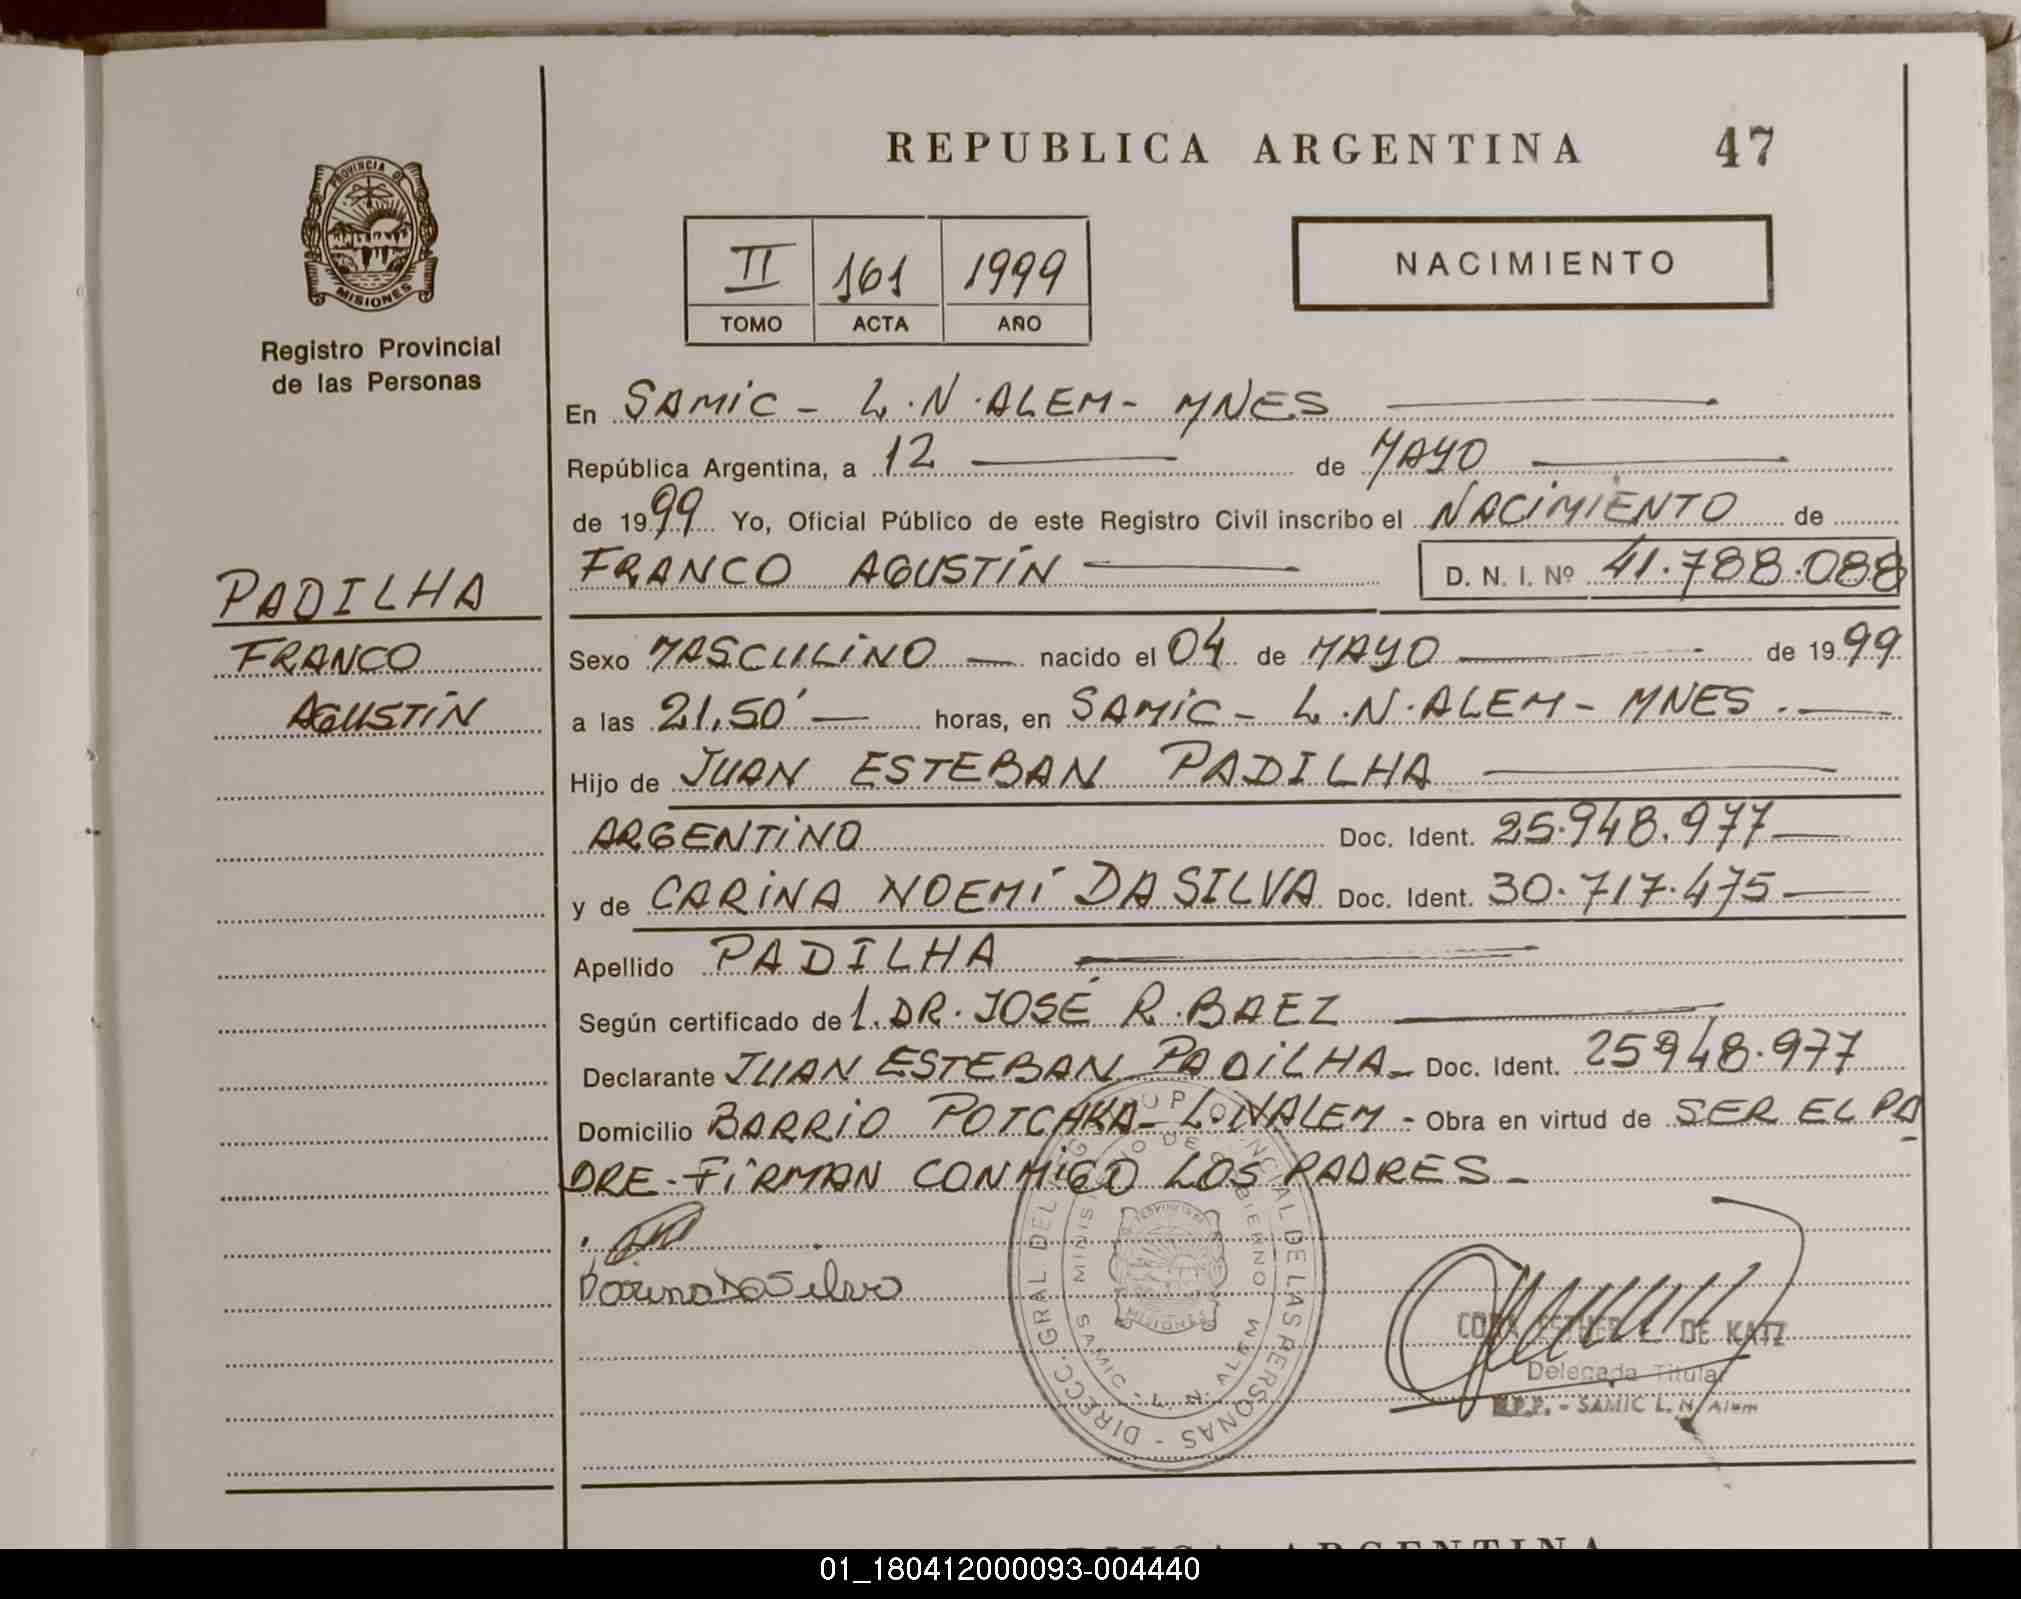 REPUBLICA ARGENTINA 47
PROVINCIA DE MISIONES
Registro Provincial
de las Personas
II 161 1999
TOMO ACTA AÑO
NACIMIENTO
En SAMIC - L.N.ALEM- MNES
República Argentina, a 12 de MAYO
de 1999 Yo, Oficial Público de este Registro Civil inscribo el NACIMIENTO de
FRANCO AGUSTÍN D. N. I. Nº 41.788.088
PADILHA
FRANCO
AGUSTÍN
Sexo MASCULINO nacido el 04 de MAYO de 1999
a las 21,50' horas, en SAMIC - L.N.ALEM - MNES.
Hijo de JUAN ESTEBAN PADILHA
ARGENTINO Doc. Ident. 25.948.977
y de CARINA NOEMÍ DA SILVA Doc. Ident. 30.717.475
Apellido PADILHA
Según certificado de 1. DR. JOSÉ R. BAEZ
Declarante JUAN ESTEBAN PADILHA Doc. Ident. 25948.977
Domicilio BARRIO POTCHKA- L.NALEM - Obra en virtud de SER EL PA
DRE - FIRMAN CONMIGO LOS PADRES -
Carina Da Silva
DIRECC. GRAL. DEL REGISTRO PROVINCIAL DE LAS PERSONAS
MINISTERIO DE GOBIERNO
PROVINCIA DE MISIONES
SAMIC - L. N. ALEM
ESTHER DE KATZ
Delegada Titular
R.P.P. - SAMIC L. N. Alem
REPUBLICA ARGENTINA
01_180412000093-004440